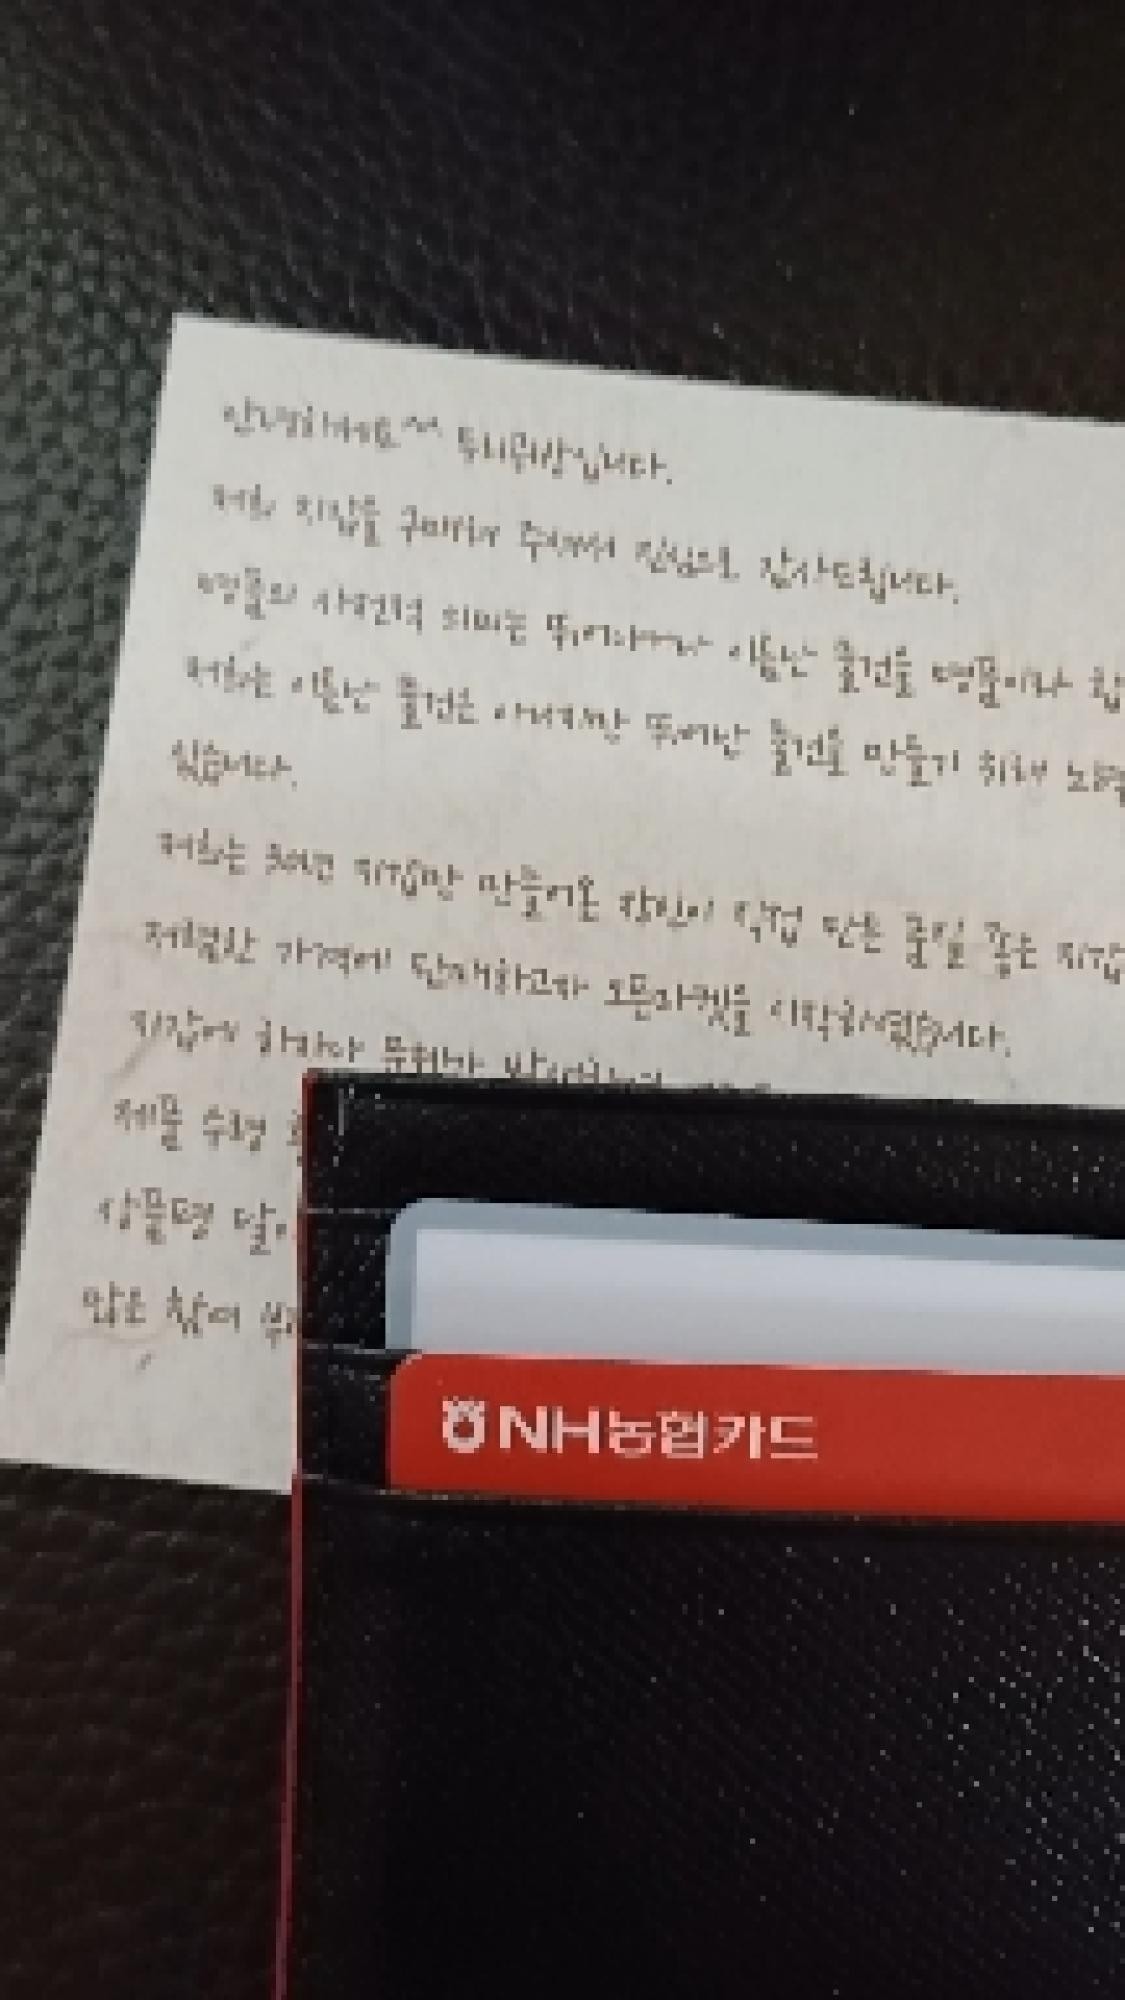 안녕하세요^^
저희 지갑을 구매하여 주셔서 진심으로 감사드립니다.
명품의 사전적 의미는 뛰어나거나 이름난 물건을 명품이라 합
저희는 이름난 물건은 아니지만 뛰어난 물건을 만들기 위해 노력
있습니다.
저희는 30년 지갑만 만들어온 장인이 직접 만든 품질 좋은 지갑
저렴한 가격에 판매하고자 오픈마켓을 시작하게되었습니다.
지갑에 하자나 문제가
제품 수령
상품평
많은 참여
NH농협카드